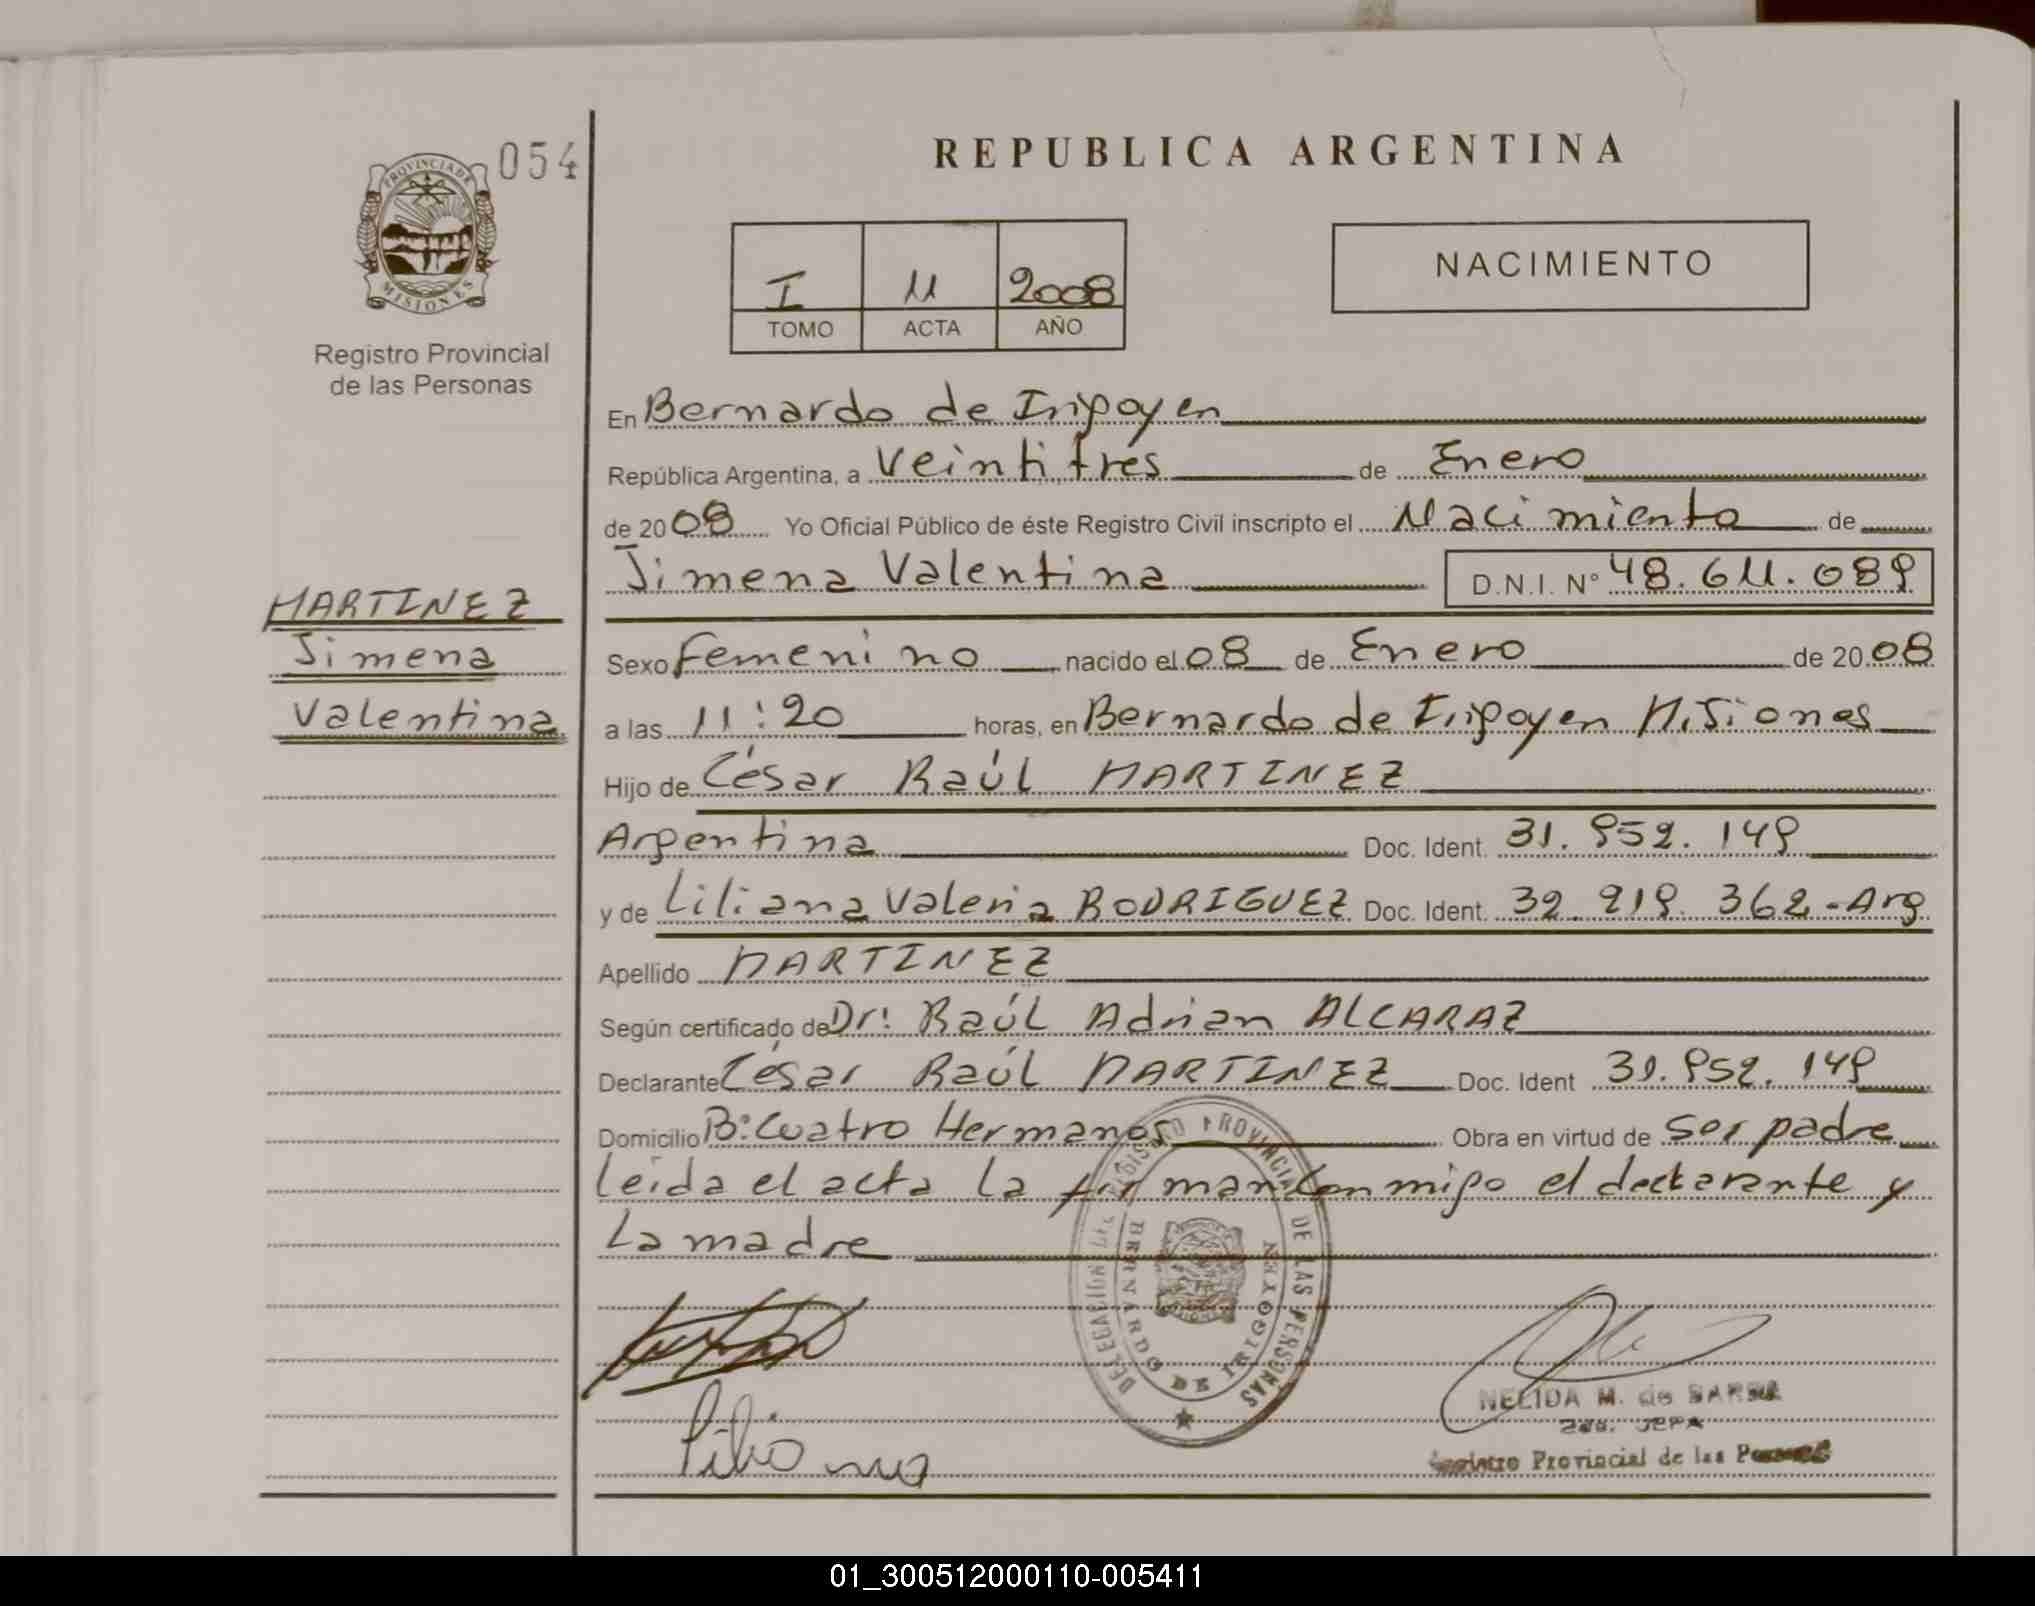 054
PROVINCIA DE
MISIONES
Registro Provincial
de las Personas
REPUBLICA ARGENTINA
I 11 2008
TOMO ACTA AÑO
NACIMIENTO
En Bernardo de Irigoyen
República Argentina, a Veintitres de Enero
de 2008 Yo Oficial Público de éste Registro Civil inscripto el Nacimiento de
Jimena Valentina D.N.I. N° 48.611.089
MARTINEZ
Jimena
Valentina
Sexo Femenino nacido el 08 de Enero de 2008
a las 11:20 horas, en Bernardo de Irigoyen Misiones
Hijo de César Raúl MARTINEZ
Argentina Doc. Ident. 31.952.149
y de Liliana Valeria RODRIGUEZ Doc. Ident. 32.919.362-Arg
Apellido MARTINEZ
Según certificado de Dr: Raúl Adrian ALCARAZ
Declarante César Raúl MARTINEZ Doc. Ident 31.952.149
Domicilio B: Cuatro Hermanos Obra en virtud de ser padre
leida el acta la firman conmigo el declarante y
la madre
DELEGACION DEL REGISTRO PROVINCIAL DE LAS PERSONAS
BERNARDO DE IRIGOYEN
NELIDA M. de
JEFA
Registro Provincial de las Personas
01_300512000110-005411